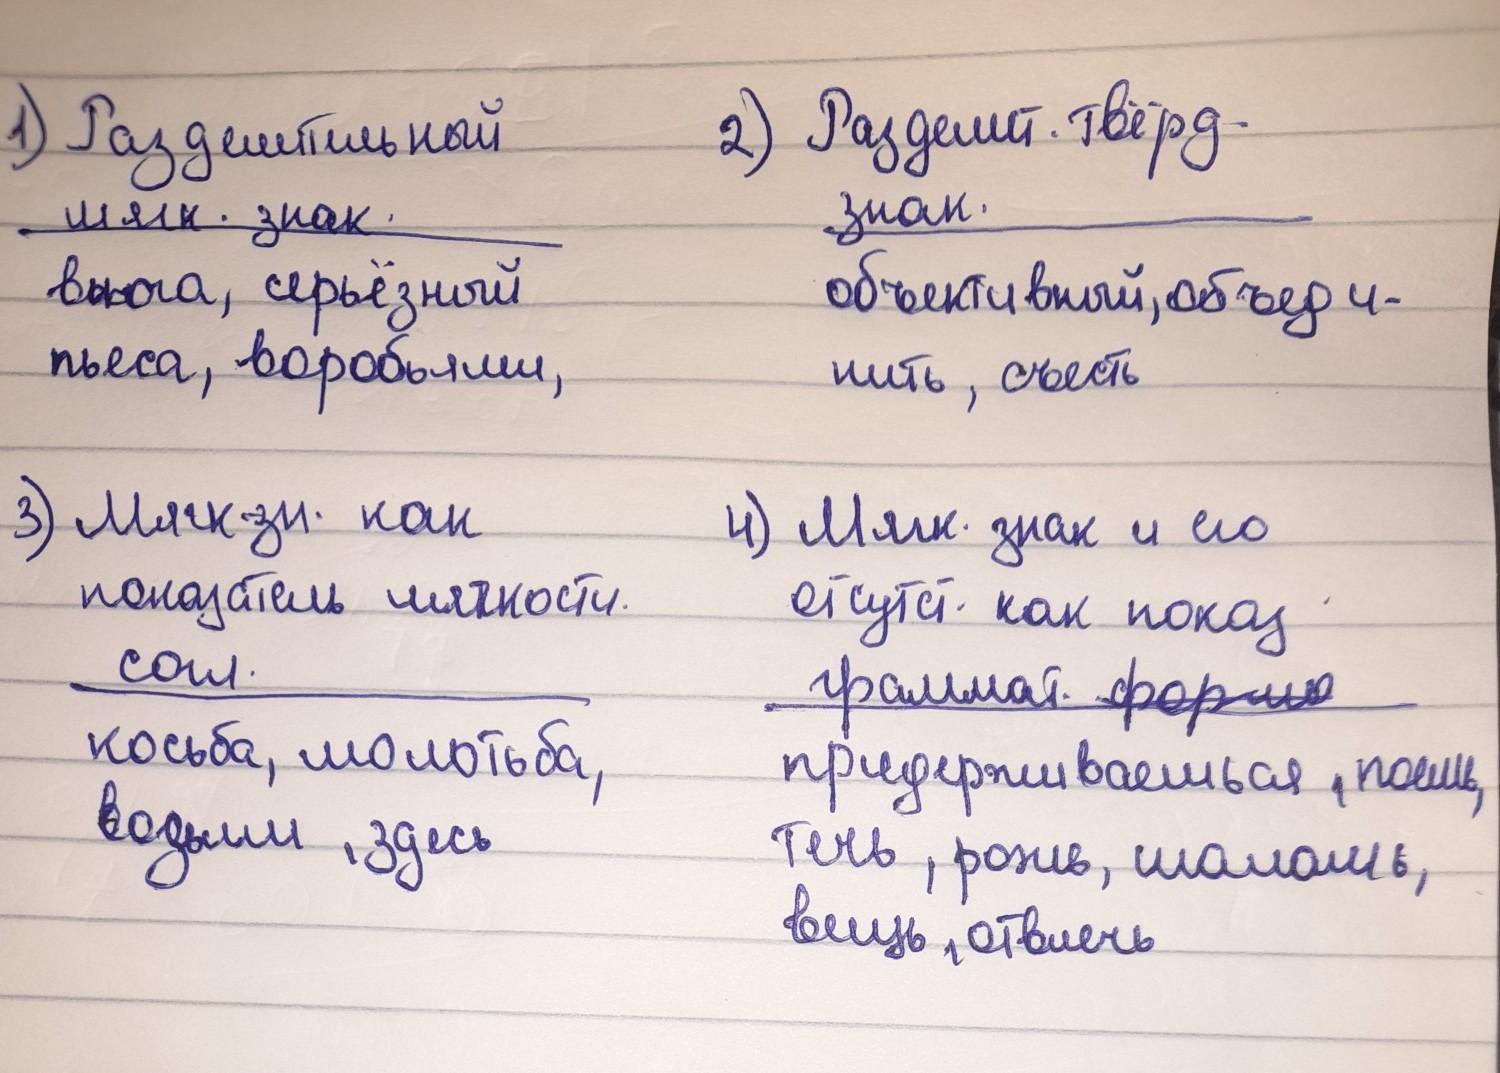 1) Разделительный
мягк. знак.
вьюга, серьёзный
пьеса, воробьями,
2) Разделит. твёрд-
знак.
объективный, объеди-
нить, съесть
3) Мягк. зн. как
показатель мягкости.
согл.
косьба, молотьба,
возьми, здесь
4) Мягк. знак и его
отсутст. как показ
граммат. форм
придерживаешься, поешь,
течь, рожь, шалашь,
вещь, отвлечь